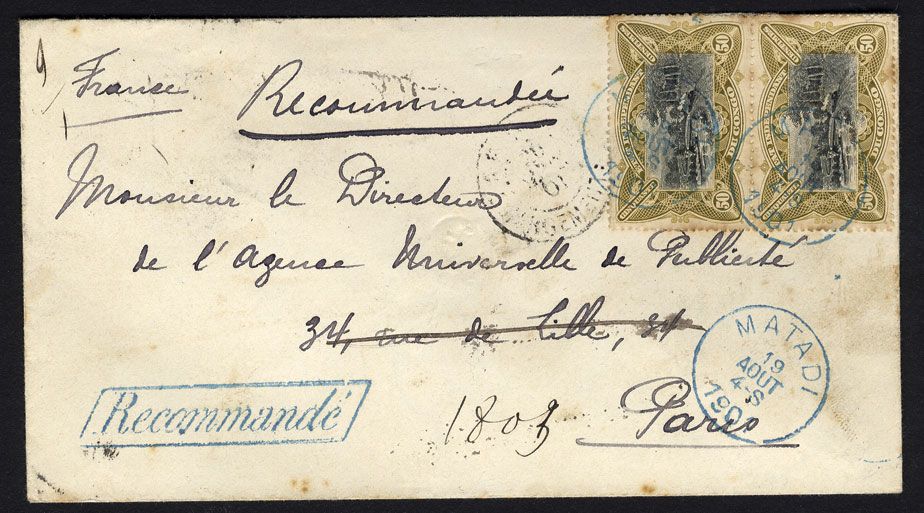 France
Recommandée
50 50
50 50
Monsieur le Directeur
de l'Agence Universelle de Publicité
34, rue de Lille, 34
MATADI
19
AOUT
4-S
190
Recommandé
1809
Paris